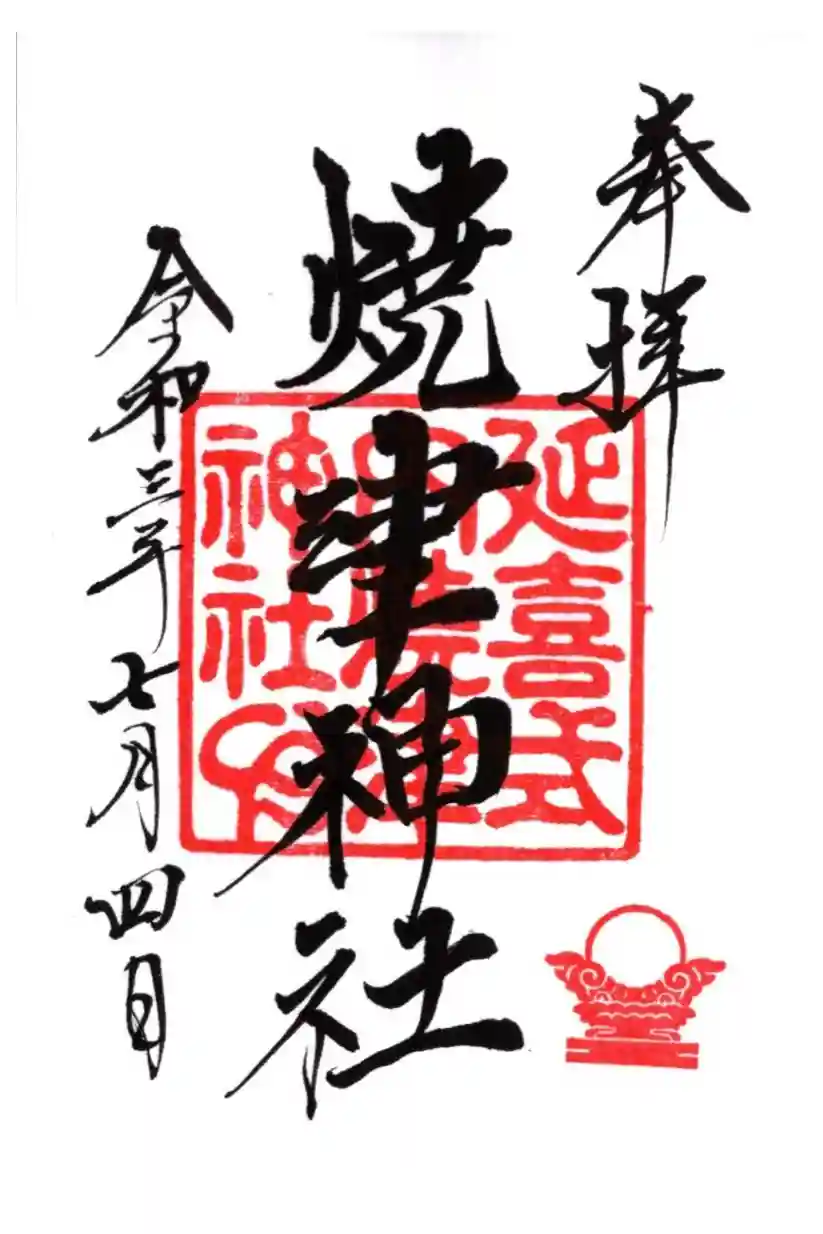 奉拝
焼津神社
延喜式
内焼津
神社印
令和三年七月四日